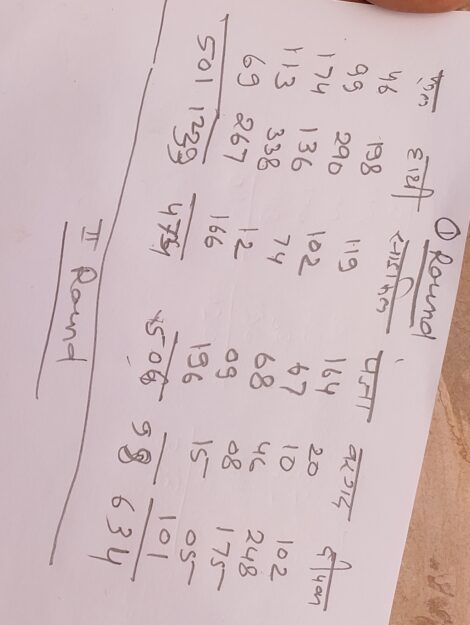 ① Round
46
99 198
174 290 119 164 20
113 136 102 67 10 102
69 338 74 68 46 248
267 12 09 08 175
166 196 15 05
501 1229 473 506 98 101
634
II Round